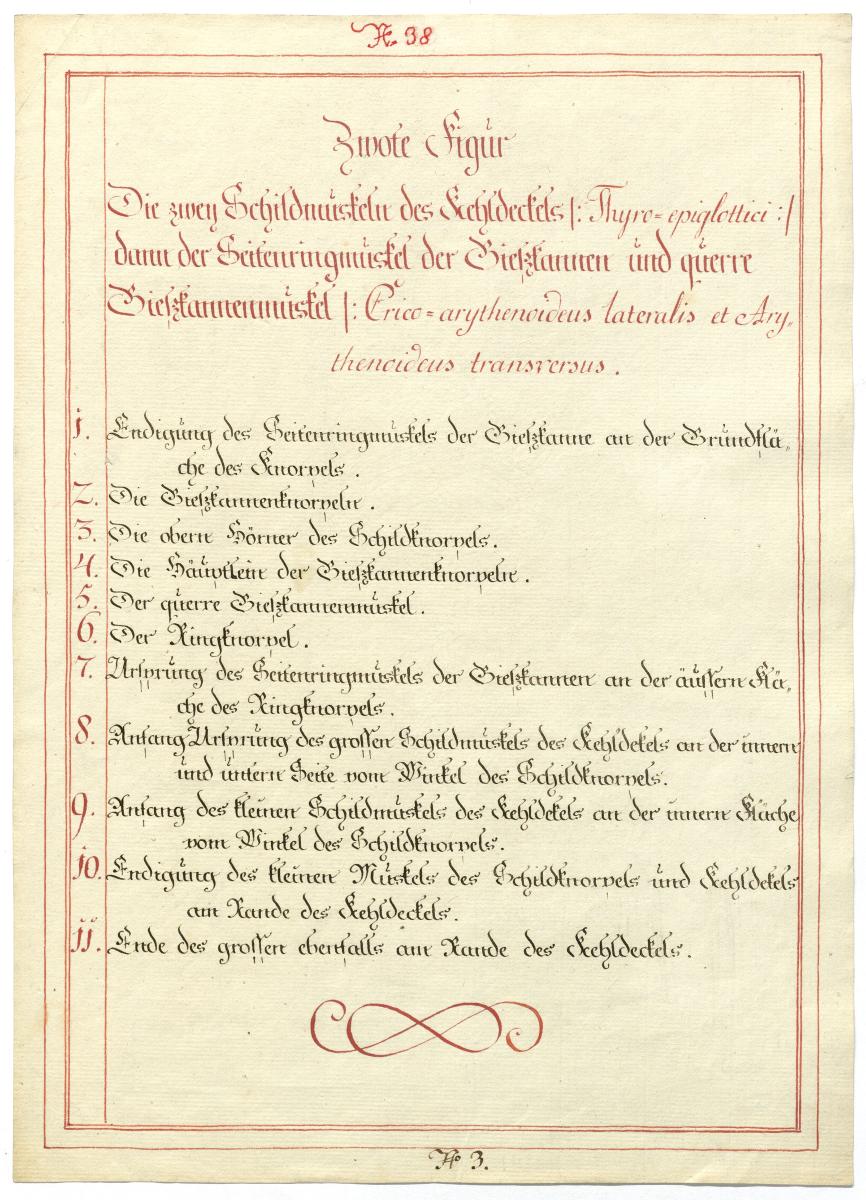 No. 38
Zwote Figur
Die zwey Schildmuskeln des Kehldeckels |: Thyro=epiglottici :|
dann der Seitenringmuskel der Gieſzkannen und querre
Gieſzkannenmuskel |: Crico=arythenoideus lateralis et Ary„
thenoideus transversus.
1. Endigung des Seitenringmuskels der Gieſzkanne an der Grundflä„
che des Knorpels.
2. Die Gieſzkannenknorpeln.
3. Die obern Hörner des Schildknorpels.
4. Die Häuptlein der Gieſzkannenknorpeln.
5. Der querre Gieſzkannenmuskel.
6. Der Ringknorpel.
7. Ursprung des Seitenringmuskels der Gieſzkannen an der äuſſern Flä„
che des Ringknorpels.
8. Anfang Ursprung des groſſen Schildmuskels des Kehldekels an der innern
und untern Seite vom Winkel des Schildknorpels.
9. Anfang des kleinen Schildmuskels des Kehldekels an der innern Fläche
vom Winkel des Schildknorpels.
10. Endigung des kleinen Muskels des Schildknorpels und Kehldekels
am Rande des Kehldeckels.
11. Ende des groſſen ebenfalls am Rande des Kehldeckels.
No 3.